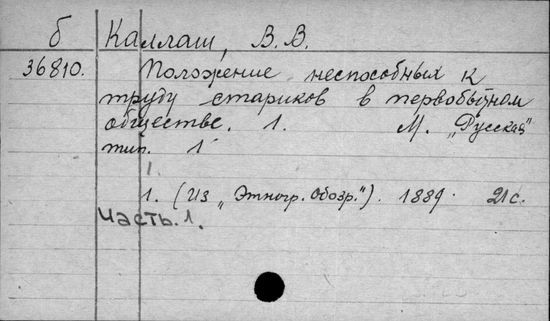 б Каллаш, В.В.
36810. Положение неспособных к
труду стариков в первобытном
обществе. 1. М. „Русская"
тип. 1
1.
1. (Из „Этногр. обозр."). 1889. 21 с.
Часть.1.